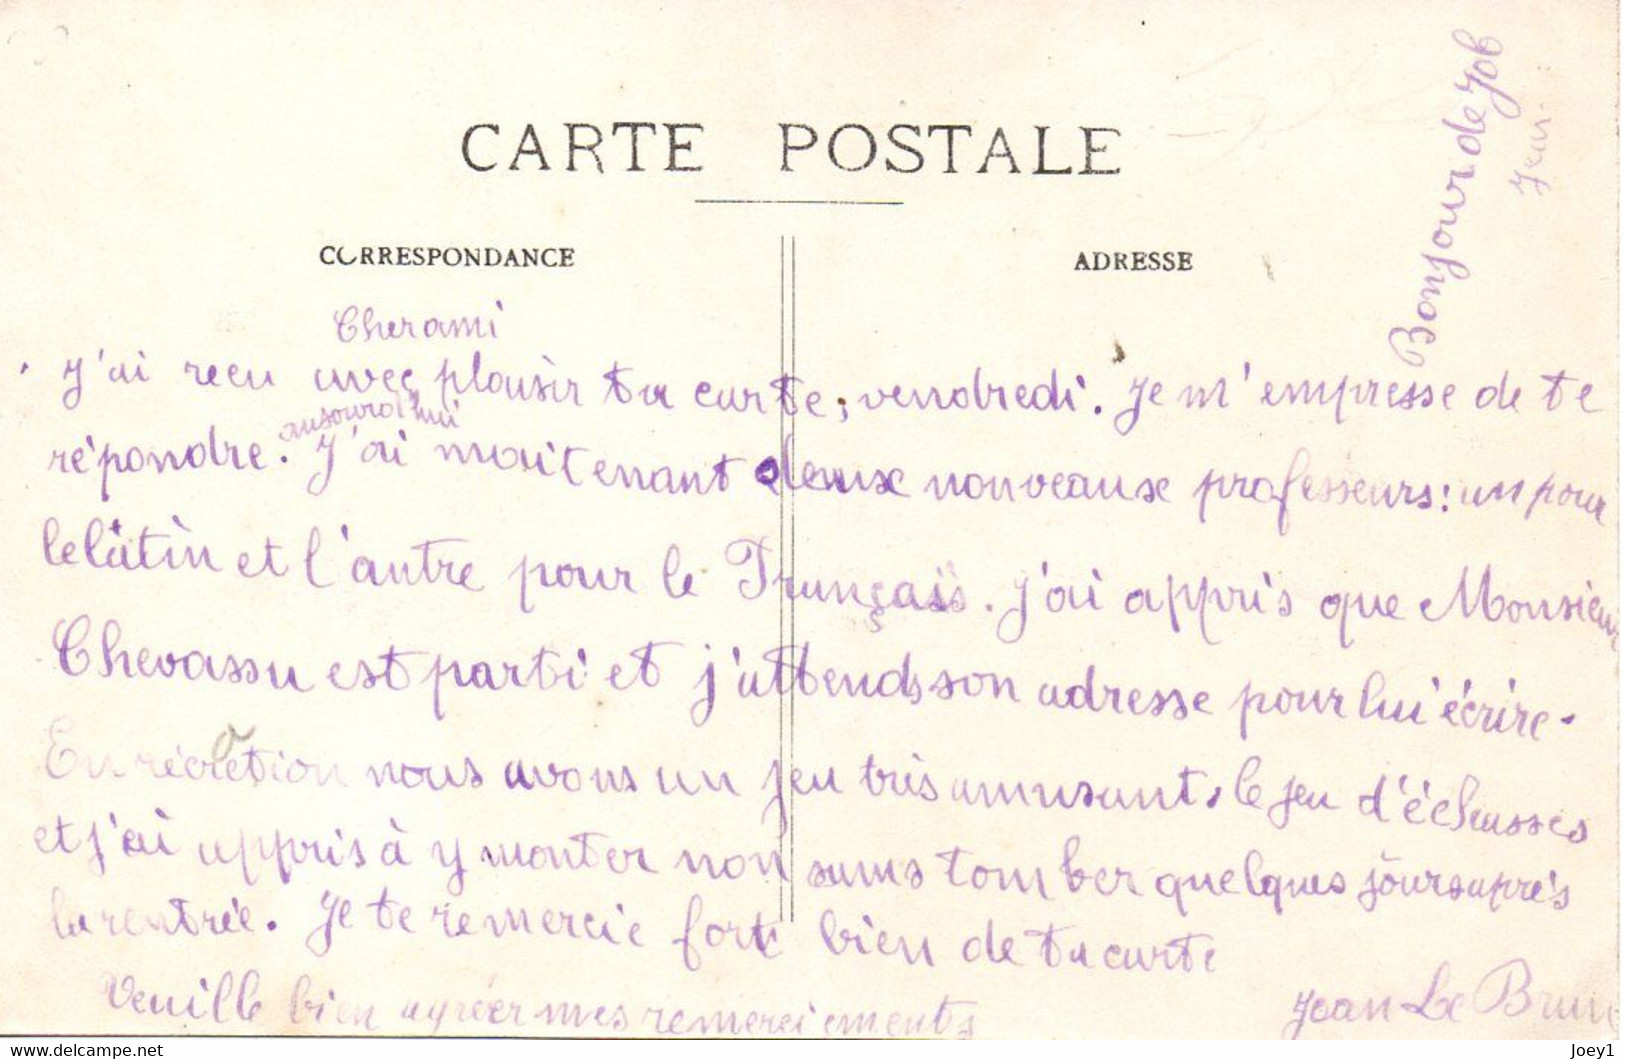 CARTE POSTALE
CORRESPONDANCE
ADRESSE
Bonjour de Job
Jean.
Cher ami
J'ai reçu avec plaisir ta carte, vendredi. Je m'empresse de te
répondre. aujourd'hui J'ai maitenant deux nouveaux professeurs: un pour
le lâtin et l'autre pour le Français. J'ai appris que Monsieur
Chevassu est parti et j'attends son adresse pour lui écrire.
En récréation nous avons un jeu très amusant, le jeu d'échasses
et j'ai appris à y monter non sans tomber quelques jours après
la rentrée. Je te remercie fort bien de ta carte
Veuille bien agréer mes remerciements
Jean Le Brun
delcampe.net
Joey1